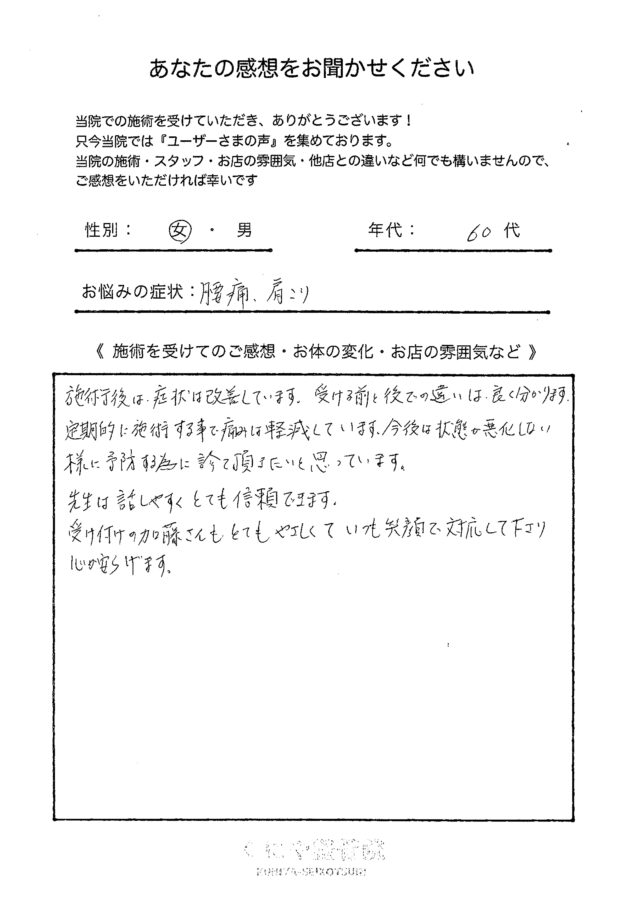 あなたの感想をお聞かせください
当院での施術を受けていただき、ありがとうございます!
只今当院では『ユーザーさまの声』を集めております。
当院の施術・スタッフ・お店の雰囲気・他店との違いなど何でも構いませんので、
ご感想をいただければ幸いです
性別: 女 ・ 男 年代: 60 代
お悩みの症状:腰痛、肩こり
《 施術を受けてのご感想・お体の変化・お店の雰囲気など 》
施術後は、症状は改善しています。受ける前と後での違いは、良く分かります。
定期的に施術する事で痛みは軽減しています。今後は状態が悪化しない
様に予防する為に診て頂きたいと思っています。
先生は話しやすくとても信頼できます。
受け付けの加藤さんもとてもやさしくていつも笑顔で対応して下さり
心が安らげます。